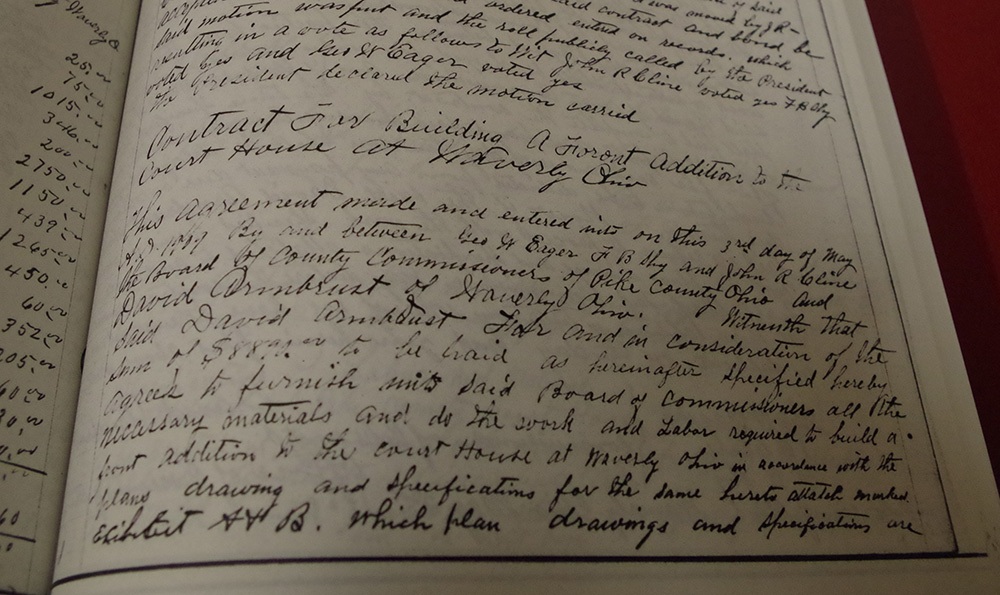 Waverly O
25.00
75.00
1015.00
346.00
200.00
2750.00
1150.00
439.00
1265.00
450.00
60.00
352.00
205.00
60.00
30.00
60
was moved by J R
ordered entered on records. which
said motion was put and the roll publicly called by the President
resulting in a vote as follows to Wit John R Cline voted yes F B Ihy
voted yes and Geo W Eager voted yes
the President declared the motion carried
Contract For Building A Foront Addition to the
Court House at Waverly Ohio
This agreement made and entered into on this 3rd day of May
A.D. By and between Geo W Eager F B Ihy and John R Cline
the Board of County Commissioners of Pike County Ohio and
David Armbrust of Waverly Ohio. Witnesseth that
Said David Armbrust For and in consideration of the
sum of to be paid as hereinafter specified hereby
agrees to furnish unto said Board of commissioners all the
necessary materials and do the work and Labor required to build a
front addition to the court House at Waverly Ohio in accordance with the
plans drawing and specifications for the same hereto attatch marked
Exhibit A & B. which plan drawings and specifications are